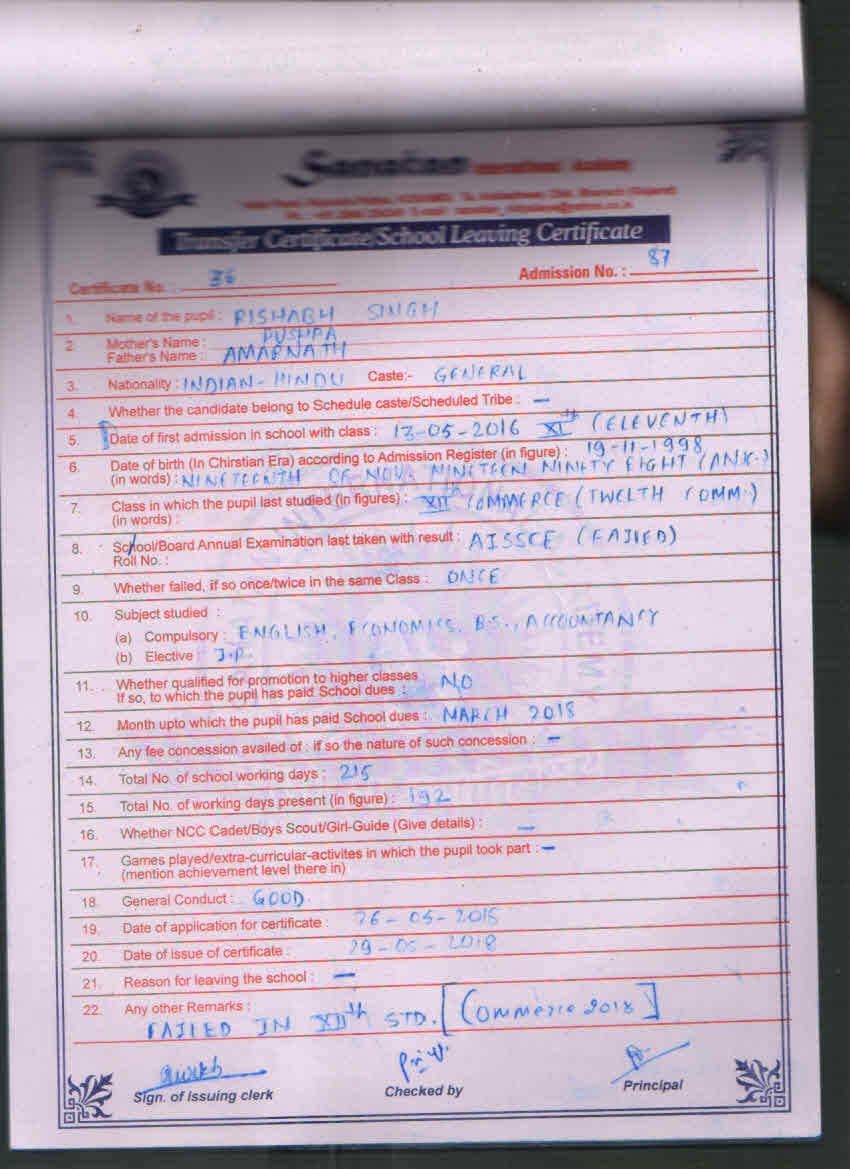 Sanatan International Academy
Transfer Certificate/School Leaving Certificate
Certificate No. : 36 Admission No. : 87
1. Name of the pupil : RISHABH SINGH
2. Mother's Name : PUSHPA
Father's Name : AMARNATH
3. Nationality : INDIAN - HINDU Caste:- GENERAL
4. Whether the candidate belong to Schedule caste/Scheduled Tribe : –
5. Date of first admission in school with class : 13-05-2016 XIth (ELEVENTH)
6. Date of birth (In Chirstian Era) according to Admission Register (in figure) : 19-11-1998
(in words) : NINETEENTH OF NOV. NINETEEN NINETY EIGHT (ANK.)
7. Class in which the pupil last studied (in figures) : XIIth COMMERCE (TWELTH COMM.)
(in words) :
8. School/Board Annual Examination last taken with result : AISSCE (FAILED)
Roll No. :
9. Whether failed, if so once/twice in the same Class : ONCE
10. Subject studied :
(a) Compulsory : ENGLISH, ECONOMICS, B.S., ACCOUNTANCY
(b) Elective : I.P.
11. Whether qualified for promotion to higher classes NO
If so, to which the pupil has paid School dues :
12. Month upto which the pupil has paid School dues : MARCH 2018
13. Any fee concession availed of : if so the nature of such concession : –
14. Total No. of school working days : 215
15. Total No. of working days present (in figure) : 192
16. Whether NCC Cadet/Boys Scout/Girl-Guide (Give details) : –
17. Games played/extra-curricular-activites in which the pupil took part : –
(mention achievement level there in)
18. General Conduct : GOOD
19. Date of application for certificate : 26-05-2018
20. Date of issue of certificate : 29-05-2018
21. Reason for leaving the school : –
22. Any other Remarks :
FAILED IN XIIth STD. [Commerce 2018]
Sign. of Issuing clerk Checked by Principal